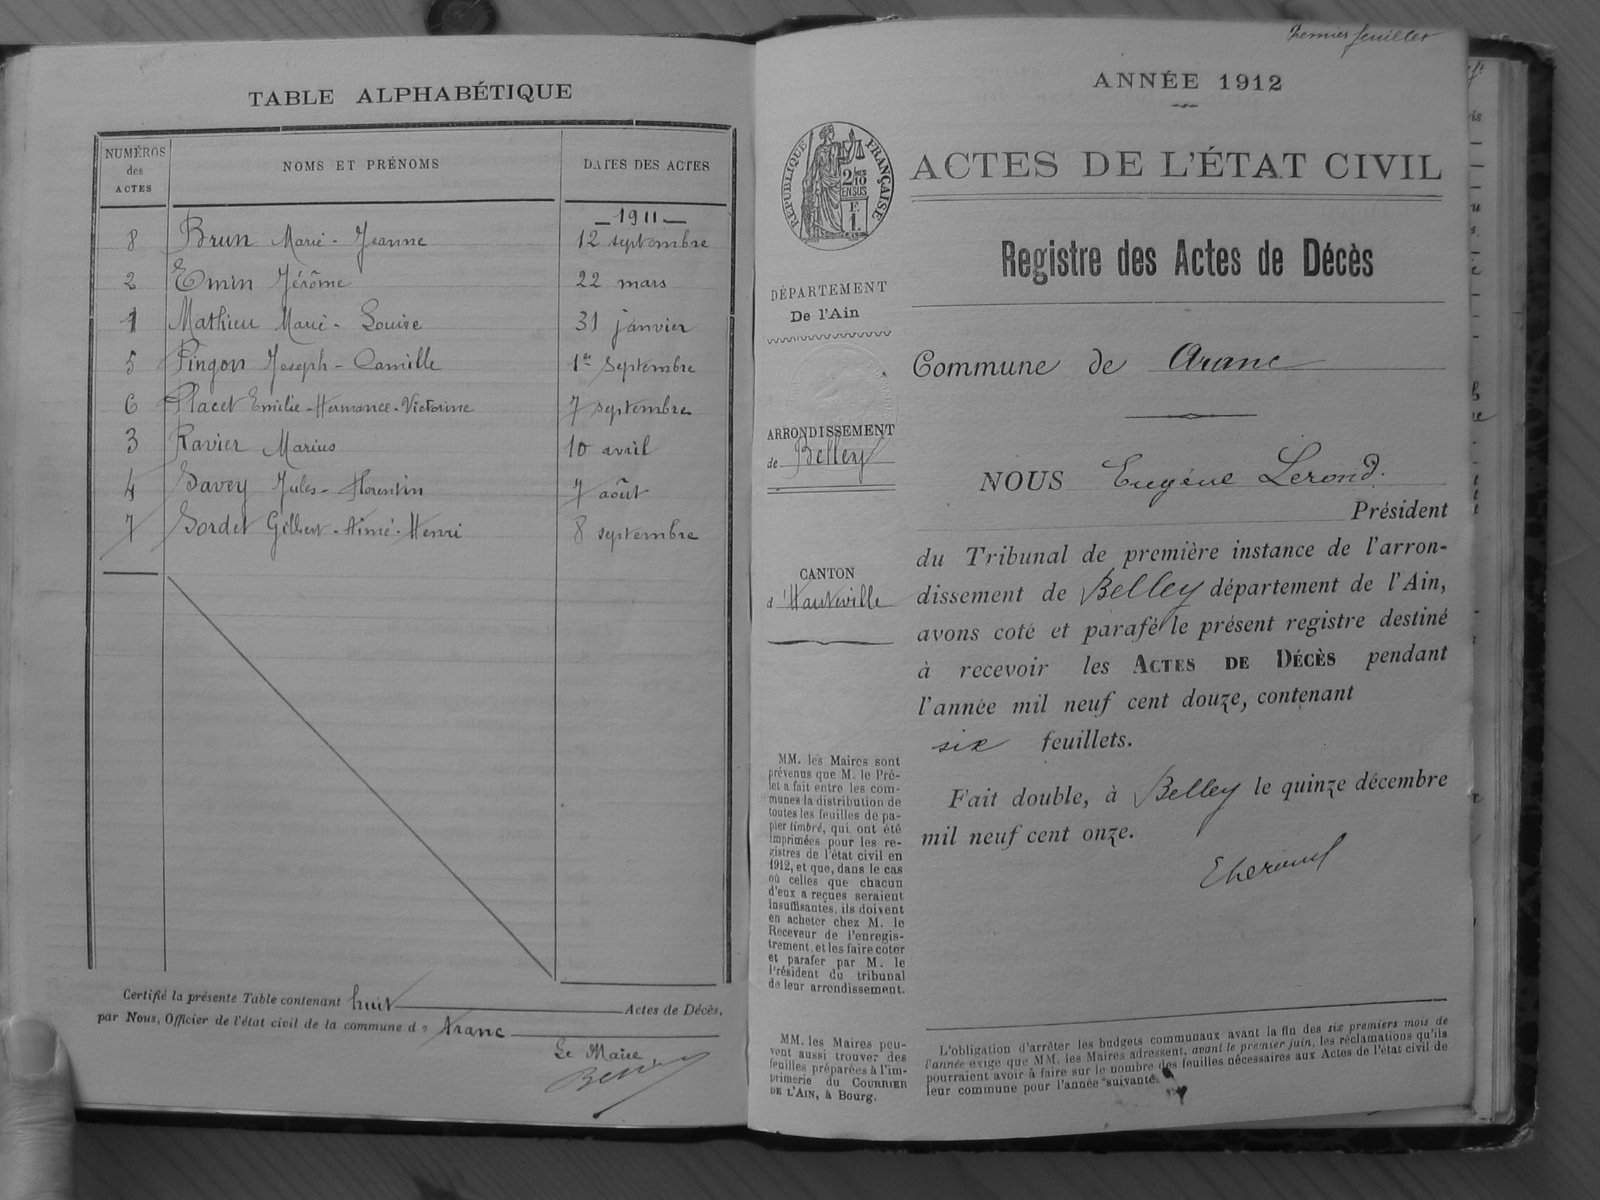 TABLE ALPHABÉTIQUE
NUMÉROS des ACTES
NOMS ET PRÉNOMS
DATES DES ACTES
1911
8 Brun Marie-Jeanne 12 septembre
2 Emin Jérôme 22 mars
1 Mathieu Marie-Louise 31 janvier
5 Pingon Joseph-Camille 1er Septembre
6 Placet Emilie-Hermance-Victorine 7 septembre
3 Ravier Marius 10 avril
4 Savey Jules-Florentin 7 août
7 Sordet Gilbert-Aimé-Henri 8 septembre
Certifié la présente Table contenant huit Actes de Décès,
par Nous, Officier de l'état civil de la commune d'Aranc
Le Maire
Premier feuillet
ANNÉE 1912
RÉPUBLIQUE FRANÇAISE
2/10
EN SUS
ACTES DE L'ÉTAT CIVIL
Registre des Actes de Décès
DÉPARTEMENT
De l'Ain
ARRONDISSEMENT
de Belley
CANTON
d'Hauteville
MM. les Maires sont
prévenus que M. le Pré-
fet a fait entre les com-
munes la distribution de
toutes les feuilles de pa-
pier timbré, qui ont été
imprimées pour les re-
gistres de l'état civil en
1912, et que, dans le cas
où celles que chacun
d'eux a reçues seraient
insuffisantes, ils doivent
en acheter chez M. le
Receveur de l'enregis-
trement, et les faire coter
et parafer par M. le
Président du tribunal
de leur arrondissement.
MM. les Maires peu-
vent aussi trouver des
feuilles préparées à l'im-
primerie du COURRIER
DE L'AIN, à Bourg.
Commune de Aranc
NOUS Eugène Lerond
Président
du Tribunal de première instance de l'arron-
dissement de Belley département de l'Ain,
avons coté et parafé le présent registre destiné
à recevoir les ACTES DE DÉCÈS pendant
l'année mil neuf cent douze, contenant
six feuillets.
Fait double, à Belley le quinze décembre
mil neuf cent onze.
L'obligation d'arrêter les budgets communaux avant la fin des six premiers mois de
l'année exige que MM. les Maires adressent, avant le premier juin, les réclamations qu'ils
pourraient avoir à faire sur le nombre des feuilles nécessaires aux Actes de l'état civil de
leur commune pour l'année suivante.